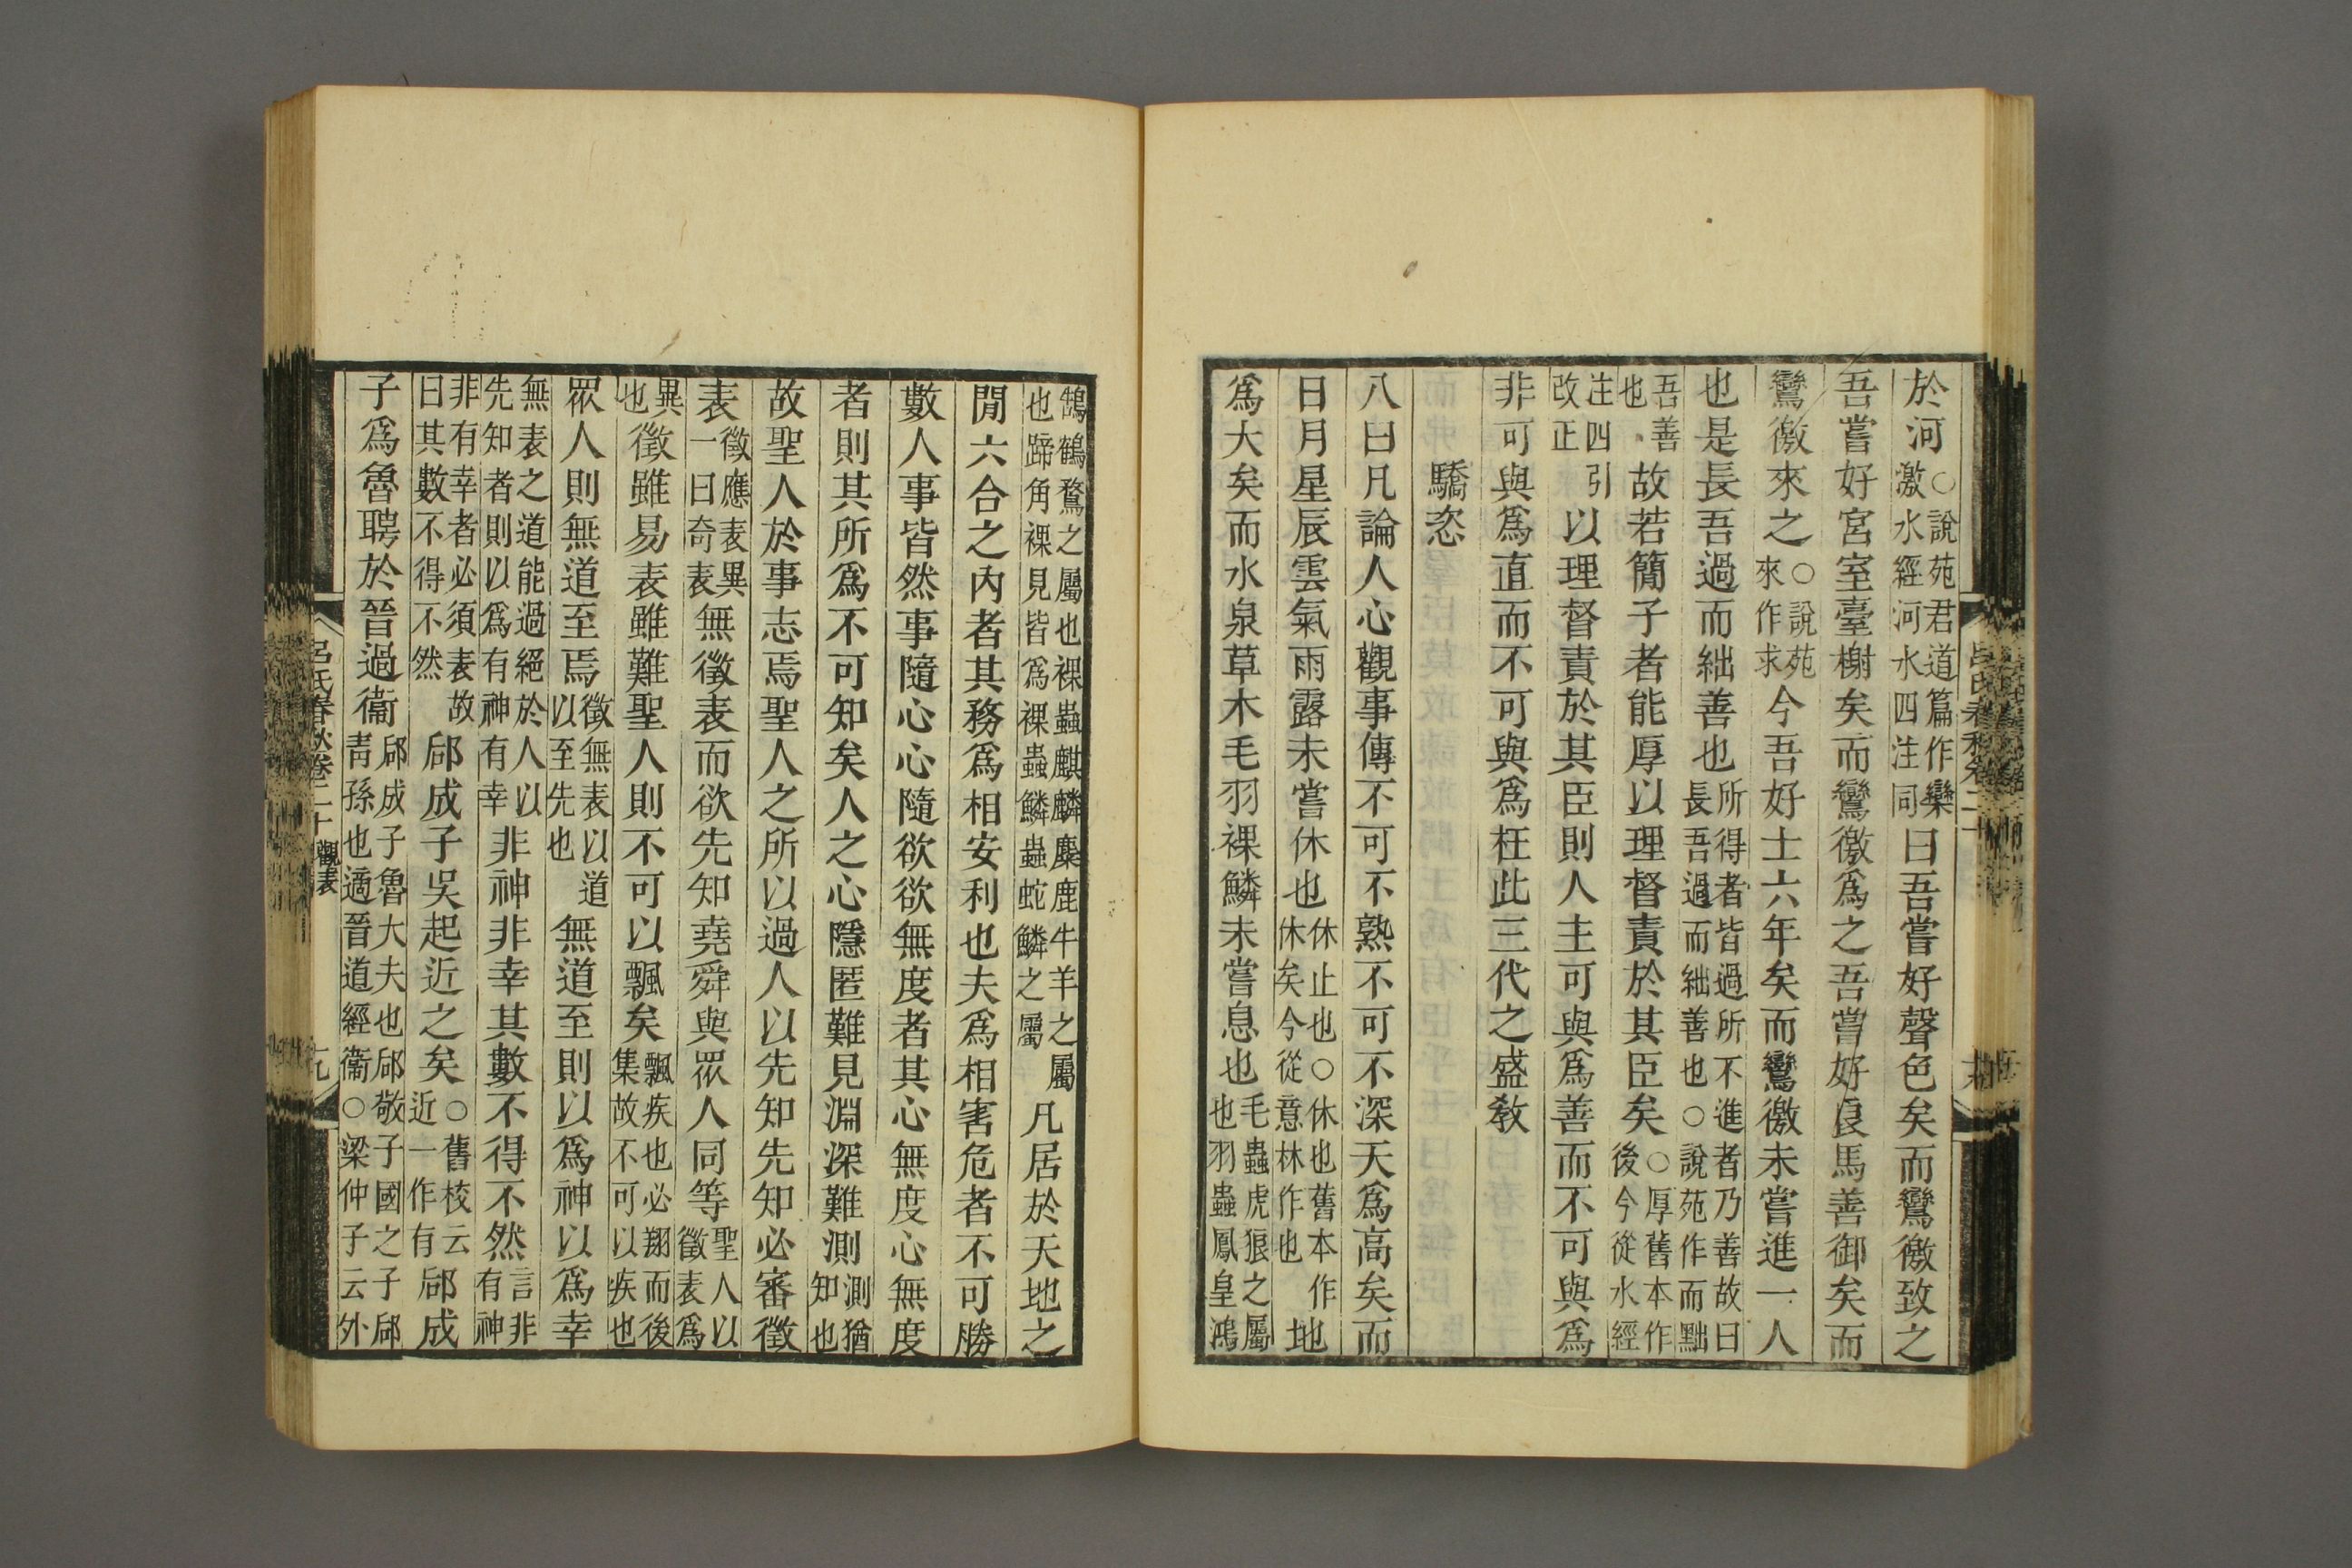 於河○說苑君道篇作欒激水經河水四注同曰吾嘗好聲色矣而鸞徼致之
吾嘗好宮室臺榭矣而鸞徼爲之吾嘗好良馬善御矣而
鸞徼來之○說苑來作求今吾好士六年矣而鸞徼未嘗進一人
也是長吾過而絀善也所得者皆過所不進者乃善故曰長吾過而絀善也○說苑作而黜
吾善也故若簡子者能厚以理督責於其臣矣○厚舊本作後今從水經
注四引改正以理督責於其臣則人主可與爲善而不可與爲
非可與爲直而不可與爲枉此三代之盛教
驕恣
八曰凡論人心觀事傳不可不熟不可不深天爲高矣而
日月星辰雲氣雨露未嘗休也休止也○休也舊本作休矣今從意林作也地
爲大矣而水泉草木毛羽裸鱗未嘗息也毛蟲虎狼之屬也羽蟲鳳皇鴻
鵠鶴鶩之屬也裸蟲麒麟麋鹿牛羊之屬也蹄角裸見皆爲裸蟲鱗蟲蛇鱗之屬凡居於天地之
閒六合之內者其務爲相安利也夫爲相害危者不可勝
數人事皆然事隨心心隨欲欲無度者其心無度心無度
者則其所爲不可知矣人之心隱匿難見淵深難測測猶知也
故聖人於事志焉聖人之所以過人以先知先知必審徵
表徵應表異一曰奇表無徵表而欲先知堯舜與眾人同等聖人以徵表爲
異也徵雖易表雖難聖人則不可以飄矣飄疾也必翔而後集故不可以疾也
眾人則無道至焉徵無表以道以至先也無道至則以爲神以爲幸
無表之道能過絕於人以先知者則以爲有神有幸非神非幸其數不得不然言非有神
非有幸者必須表故曰其數不得不然郈成子吳起近之矣○舊校云近一作有郈成
子爲魯聘於晉過衞郈成子魯大夫也郈敬子國之子郈靑孫也適晉道經衞○梁仲子云外
呂氏春秋卷二十 觀表 九